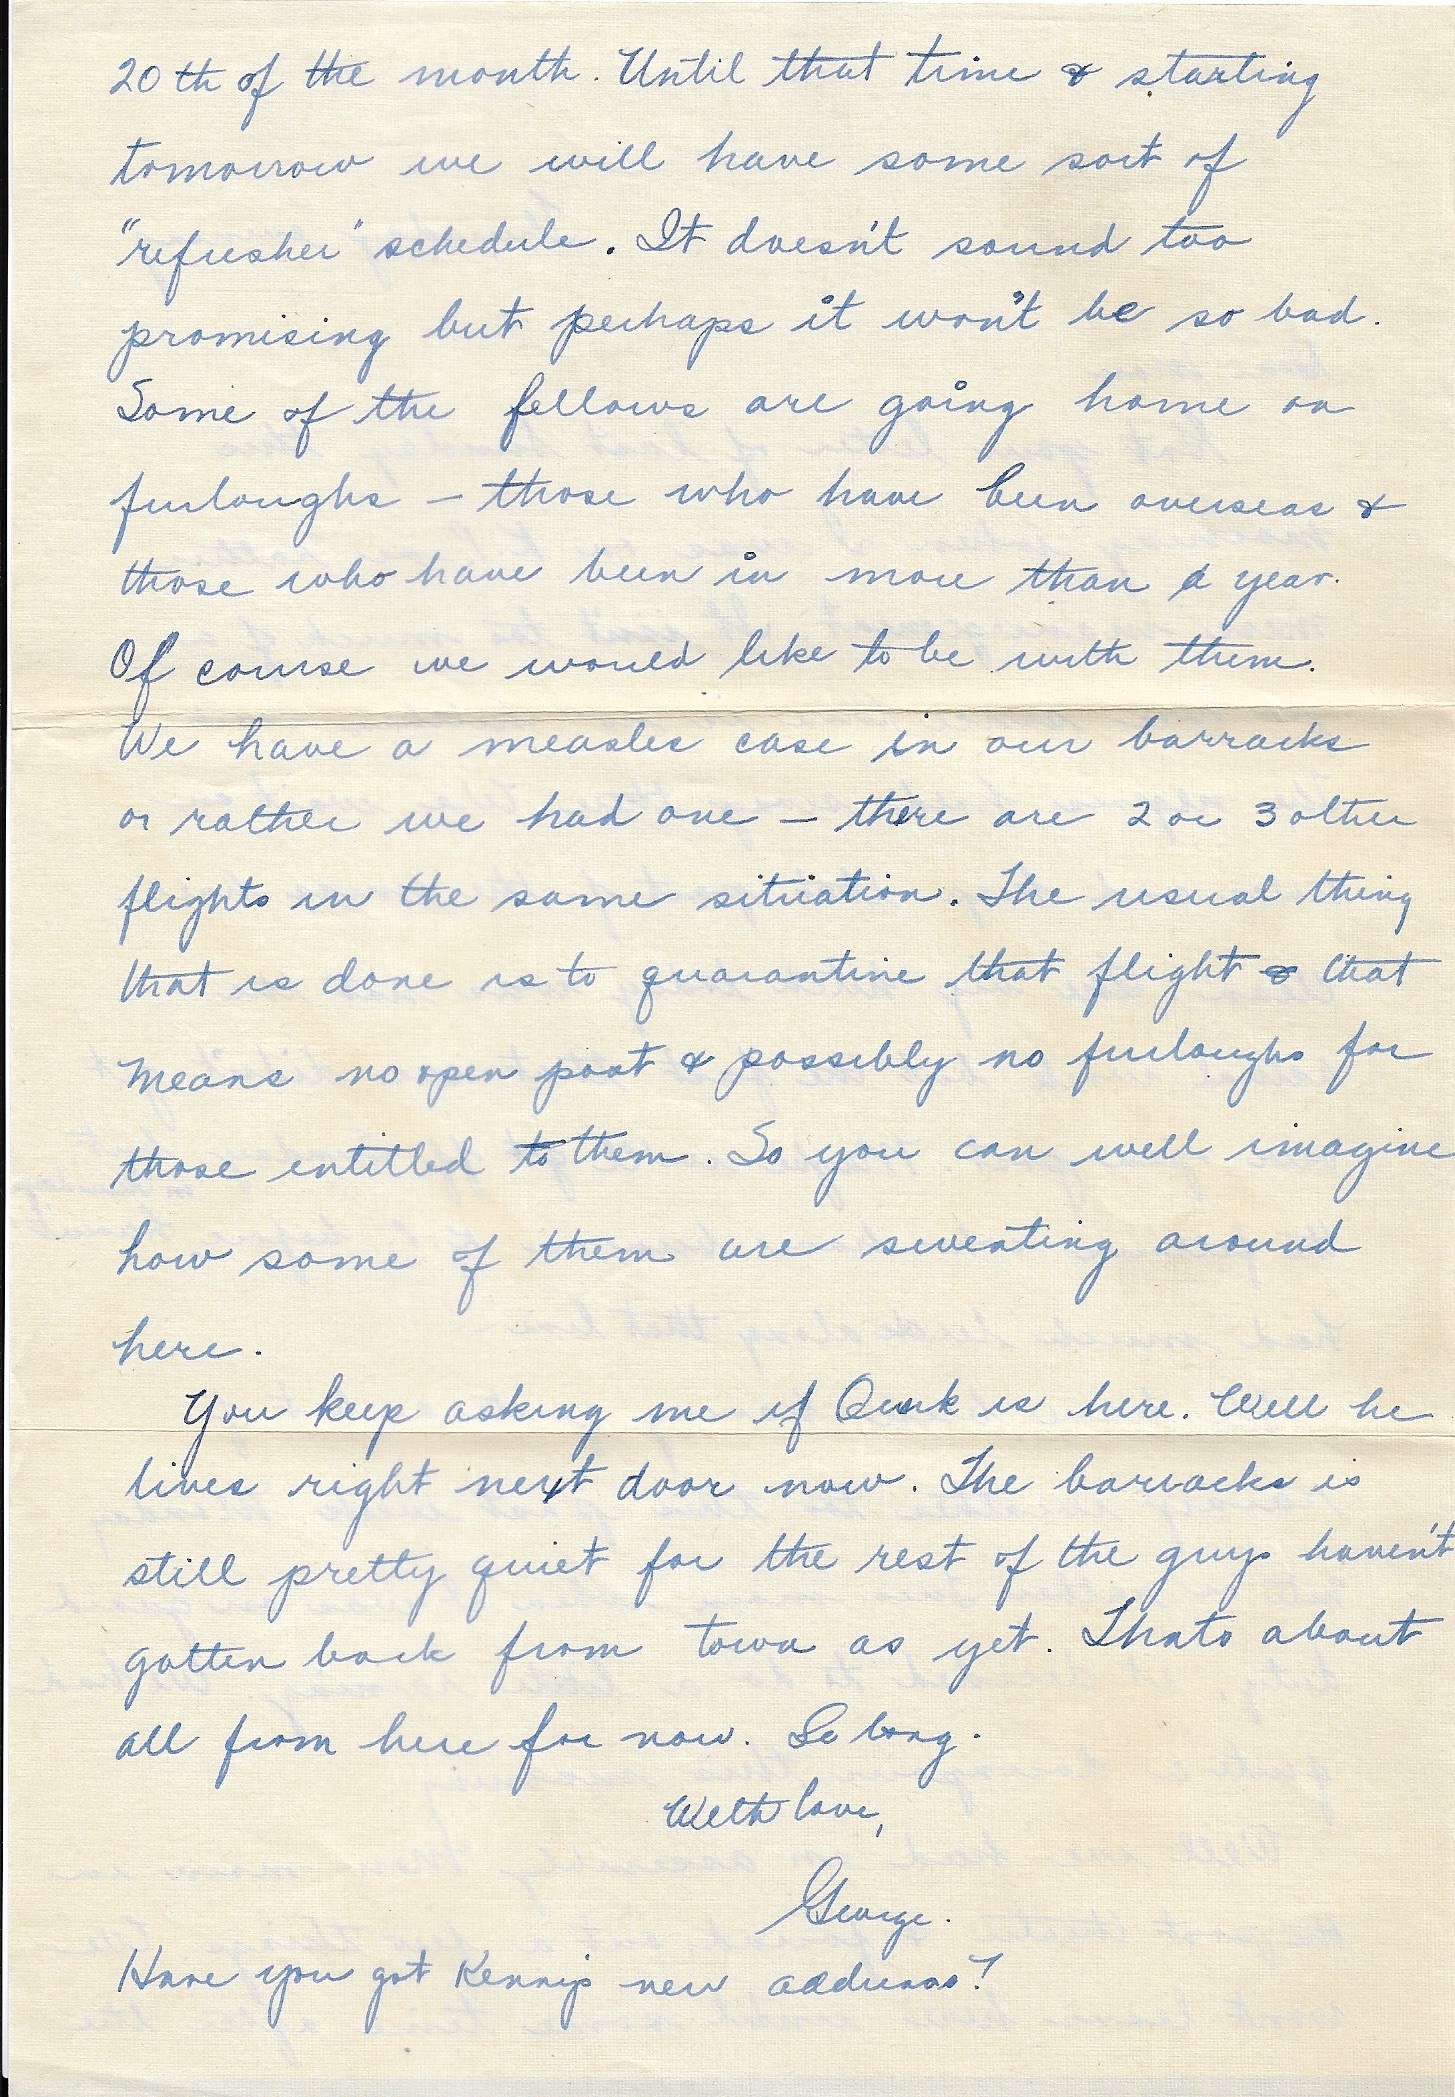 20th of the month. Until that time & starting
tomorrow we will have some sort of
"refresher" schedule. It doesn't sound too
promising but perhaps it won't be so bad.
Some of the fellows are going home on
furloughs – those who have been overseas &
those who have been in more than a year.
Of course we would like to be with them.
We have a measles case in our barracks
or rather we had one – there are 2 or 3 other
flights in the same situation. The usual thing
that is done is to quarantine that flight & that
means no open post & possibly no furloughs for
those entitled to them. So you can well imagine
how some of them are sweating around
here.
You keep asking me if is here. Well he
lives right next door now. The barracks is
still pretty quiet for the rest of the guys haven't
gotten back from town as yet. Thats about
all from here for now. So long.
With love,
George.
Have you got Kenny's new address?